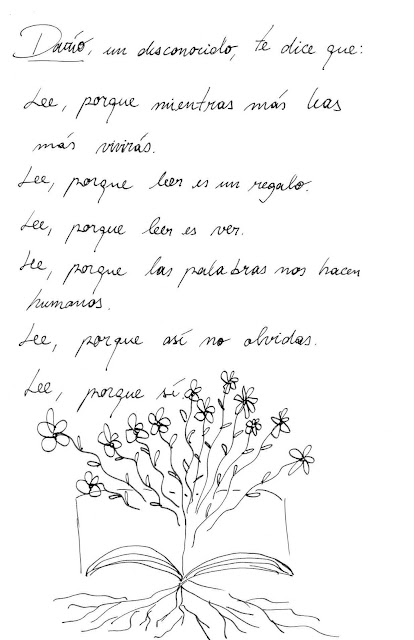 Darío, un desconocido, te dice que:
Lee, porque mientras más leas
más vivirás.
Lee, porque leer es un regalo.
Lee, porque leer es ver.
Lee, porque las palabras nos hacen
humanos.
Lee, porque así no olvidas.
Lee, porque sí.